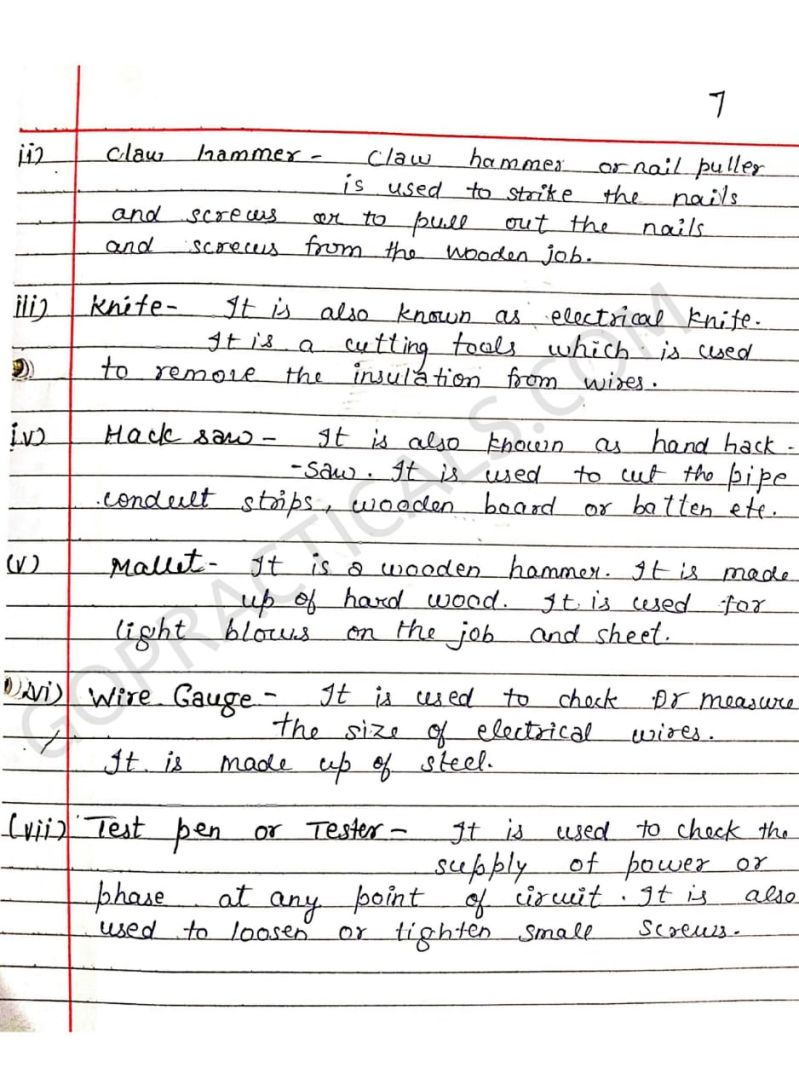 7
ii) Claw hammer - Claw hammer or nail puller
is used to strike the nails
and screws or to pull out the nails
and screws from the wooden job.
iii) Knife - It is also known as electrical Knife.
It is a cutting tools which is used
to remove the insulation from wires.
iv) Hack saw - It is also known as hand hack -
- saw. It is used to cut the pipe
conduit strips, wooden board or batten etc.
(v) Mallet - It is a wooden hammer. It is made
up of hard wood. It is used for
light blows on the job and sheet.
vi) Wire Gauge - It is used to check or measure
the size of electrical wires.
It is made up of steel.
(vii) Test pen or Tester - It is used to check the
supply of power or
phase at any point of circuit. It is also
used to loosen or tighten small screws.
GOPRACTICALS.COM